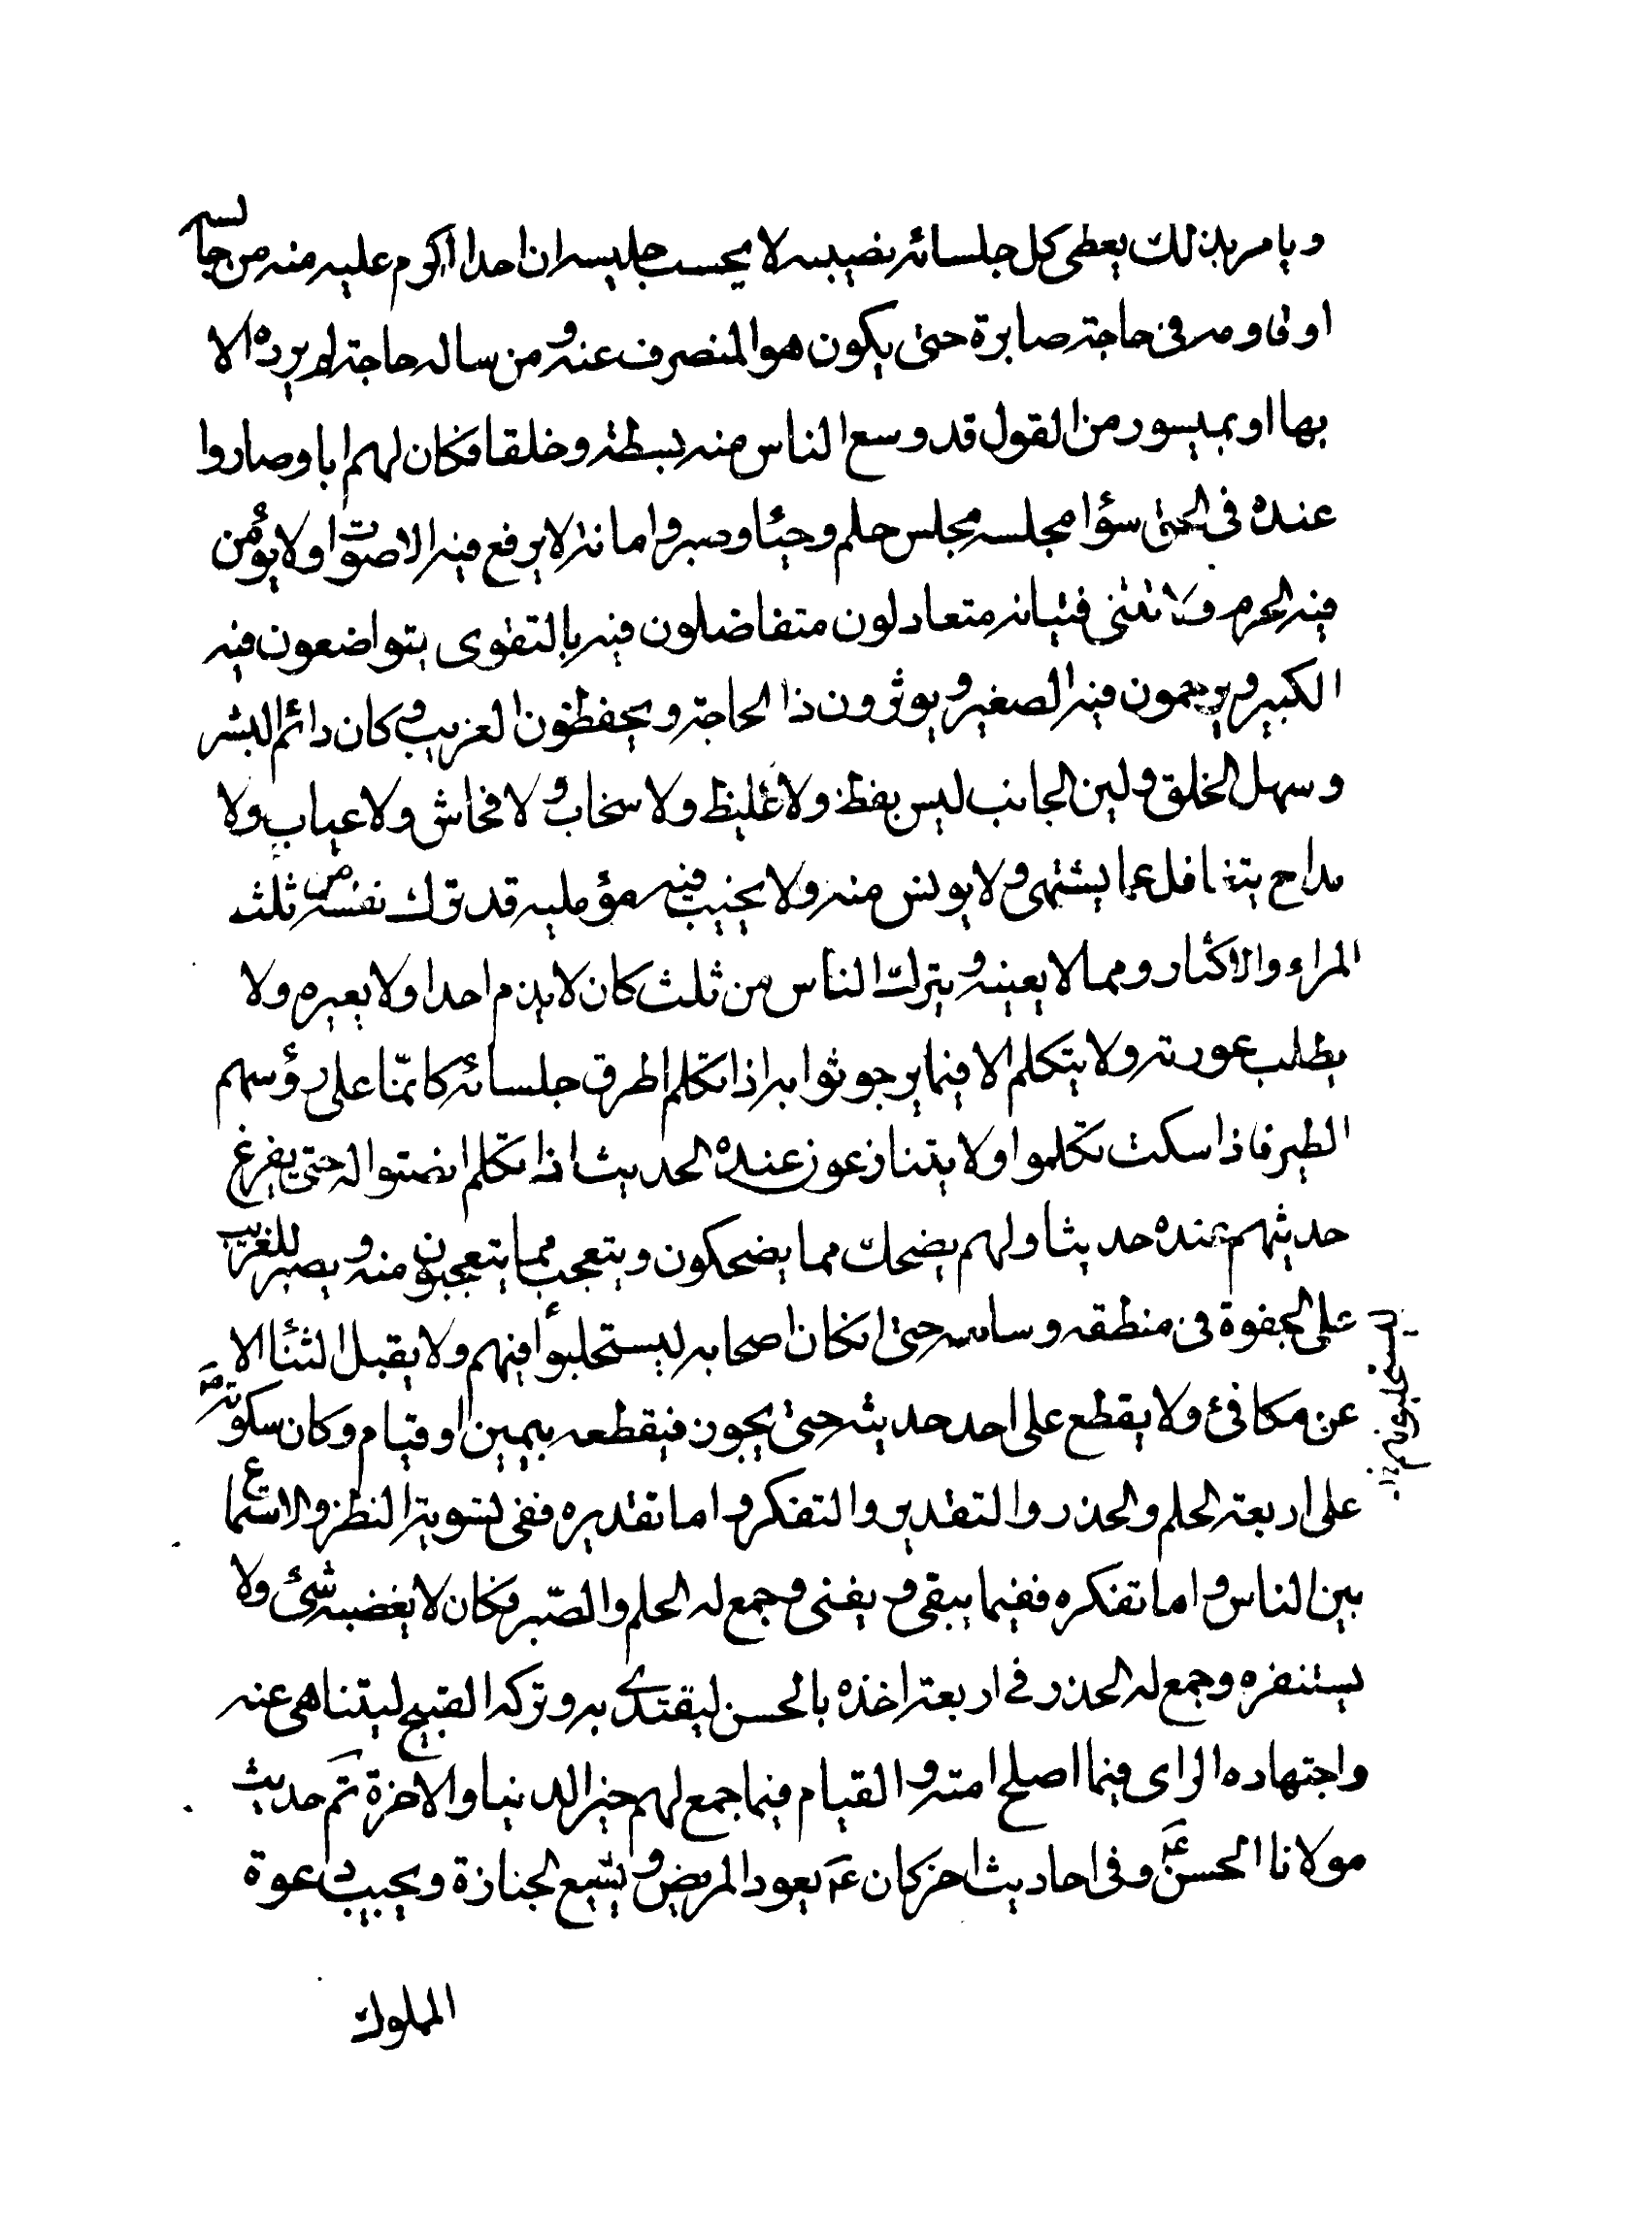 ويامر بذلك يعطى كل جلسائه نصيبه لا يحسب جليسه ان احدا اكرم عليه منه من جالسه
او قاومه في حاجة صابرة حتى يكون هو المنصرف عنه ومن ساله حاجة لم يرده الا
بها او بميسور من القول قد وسع الناس منه بسطة وخلقا فكان لهم ابا وصاروا
عنده في الحق سؤا مجلسه مجلس حلم وحيا وصبر وامانة لا يرفع فيه الاصوات ولا يؤمن
فيه الحرم ولا تنثنى فتياته متعادلون متفاضلون فيه بالتقوى يتواضعون فيه
الكبير ويرحمون فيه الصغير ويوثرون ذا الحاجة ويحفظون الغريب وكان دائم البشر
وسهل الخلق ولين الجانب ليس بفظ ولا غليظ ولا سخاب ولا فحاش ولا عياب ولا
مداح يتغافل عما يشتهى ولا يوئس منه ولا يخيب فيه مؤمليه قد ترك نفسه من ثلث
المراء والاكثار ومما لا يعينه ويترك الناس من ثلث كان لا يذم احدا ولا يعيره ولا
يطلب عورته ولا يتكلم الا فيما يرجو ثوابه اذا تكلم اطرق جلسائه كانمّا على رؤسهم
الطير فاذا سكت تكلموا ولا يتنازعون عنده الحديث اذا تكلم انصتوا له حتى يفرغ
حديثهم عنده حديث اولهم يضحك مما يضحكون ويتعجب مما يتعجبون منه ويصبر للغريب
على الجفوة في منطقه وسامه حتى انكان اصحابه ليستحلبوا فيهم ولا يقبل الثنا الا
عن مكافئ ولا يقطع على احد حديثه حتى يجوز فيقطعه بيمين او قيام وكان سكوته
على اربعة الحلم والحذر والتقدير والتفكر واما تقديره ففى تسوية النظر والاستماع
بين الناس واما تفكره ففيما يبقى ويفنى وجمع له الحلم والصّبر فكان لا يغضبه شئ ولا
يستنفره وجمع له الحذر في اربعة اخذه بالحسن ليقتدى به وتركه القبيح ليتناهى عنه
واجتهاده الراى فيما اصلح امته والقيام فيما جمع لهم خير الدنيا والاخرة تم حديث
مولانا الحسن ع م وفى احاديث اخر كان ع م يعود المريض ويشيع الجنازة ويجيب دعوة
المملوك